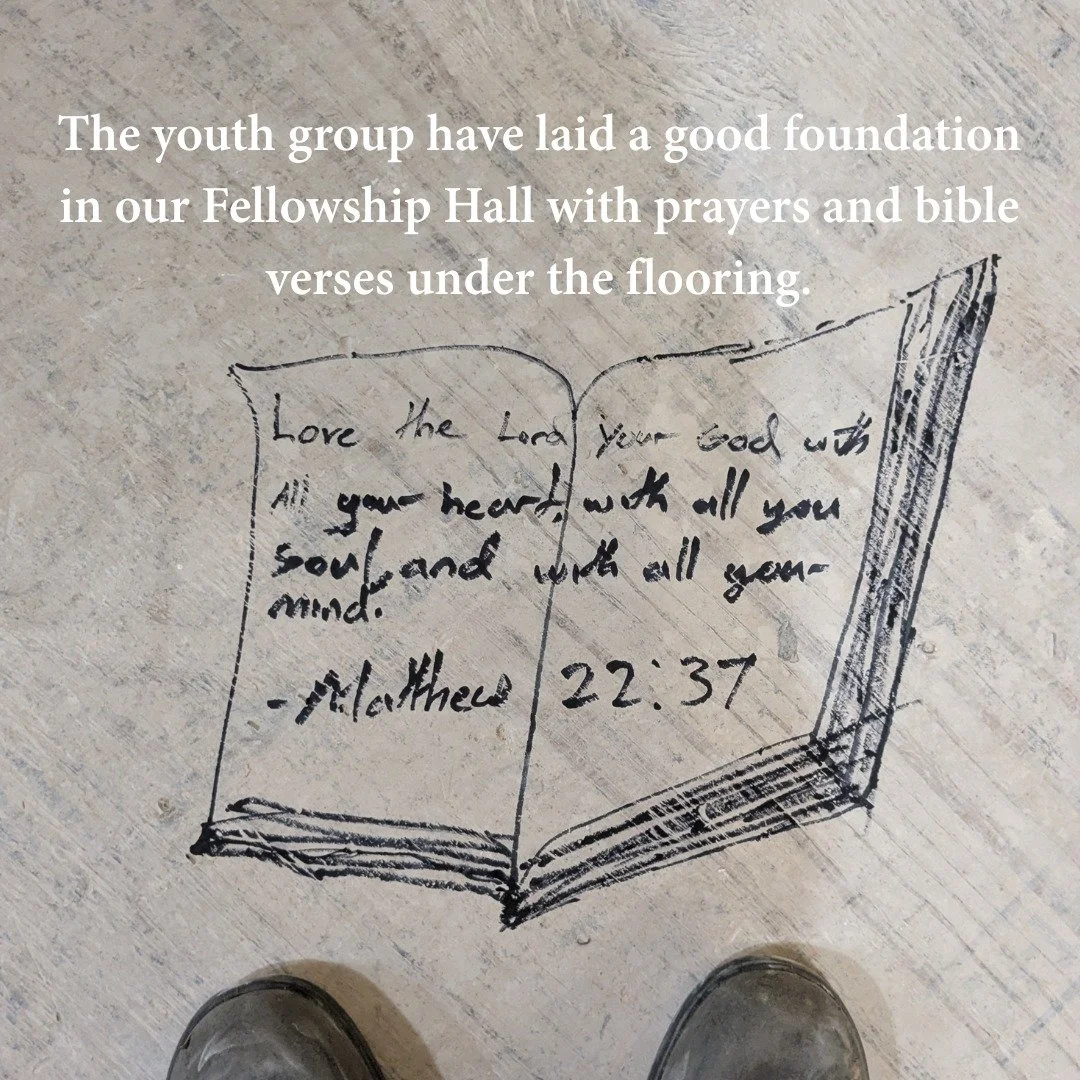 The youth group have laid a good foundation
in our Fellowship Hall with prayers and bible
verses under the flooring.
Love the Lord your God with
All your heart, with all you
soul, and with all your
mind.
- Matthew 22:37